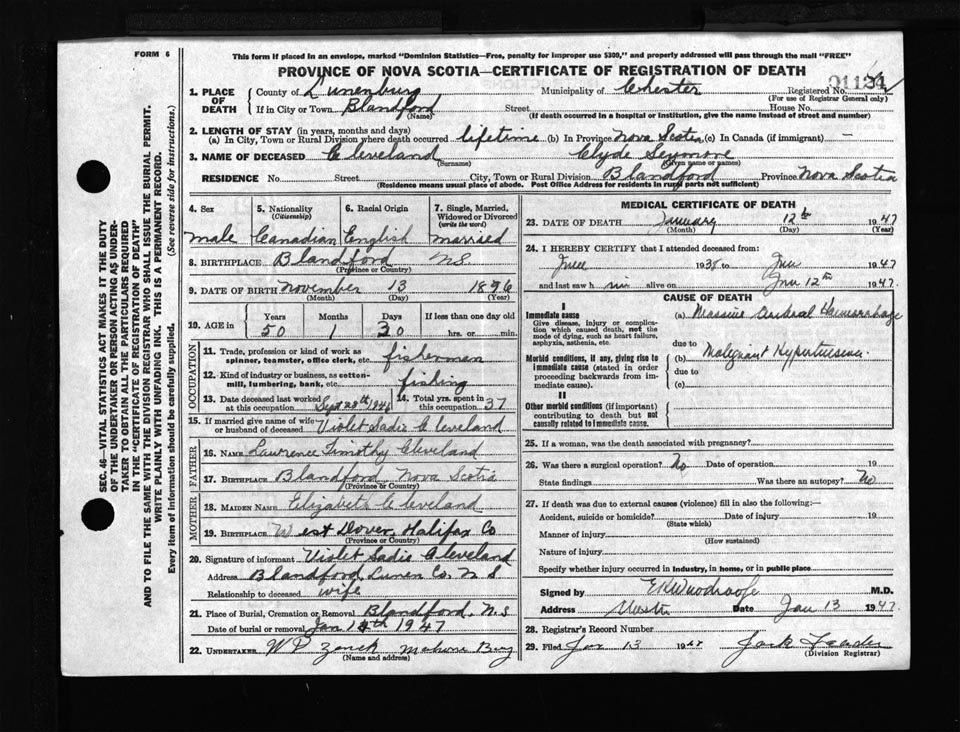 FORM 6
This form if placed in an envelope, marked "Dominion Statistics—Free, penalty for improper use $300," and properly addressed will pass through the mail "FREE"
PROVINCE OF NOVA SCOTIA—CERTIFICATE OF REGISTRATION OF DEATH
1. PLACE OF DEATH County of Lunenburg Municipality of Chester Registered No.
(For use of Registrar General only)
If in City or Town Blandford Street House No.
(Name) (If death occurred in a hospital or institution, give the name instead of street and number)
2. LENGTH OF STAY (in years, months and days)
(a) In City, Town or Rural Division where death occurred lifetime (b) In Province Nova Scotia (c) In Canada (if immigrant) —
3. NAME OF DECEASED Cleveland Clyde Seymore
(Surname) (Given name or names)
RESIDENCE No. Street City, Town or Rural Division Blandford Province Nova Scotia
(Residence means usual place of abode. Post Office Address for residents in rural parts not sufficient)
4. Sex 5. Nationality (Citizenship) 6. Racial Origin 7. Single, Married, Widowed or Divorced (write the word)
male Canadian English married
8. BIRTHPLACE Blandford N.S.
(Province or Country)
9. DATE OF BIRTH November 13 1896
(Month) (Day) (Year)
10. AGE in Years Months Days If less than one day old
50 1 30 hrs. or min.
OCCUPATION
11. Trade, profession or kind of work as spinner, teamster, office clerk, etc. fishermen
12. Kind of industry or business, as cotton-mill, lumbering, bank, etc. fishing
13. Date deceased last worked at this occupation Sept 28th 1946 14. Total yrs. spent in this occupation 37
15. If married give name of wife or husband of deceased Violet Sadie Cleveland
FATHER
16. NAME Lawrence Timothy Cleveland
17. BIRTHPLACE Blandford Nova Scotia
(Province or Country)
MOTHER
18. MAIDEN NAME Elizabeth Cleveland
19. BIRTHPLACE West Dover, Halifax Co
(Province or Country)
20. Signature of informant Violet Sadie Cleveland
Address Blandford, Lunen Co, N S
Relationship to deceased wife
21. Place of Burial, Cremation or Removal Blandford, N.S
Date of burial or removal Jan 14th 1947
22. UNDERTAKER W P Zanck Mahone Bay
(Name and address)
MEDICAL CERTIFICATE OF DEATH
23. DATE OF DEATH January 12th 1947
(Month) (Day) (Year)
24. I HEREBY CERTIFY that I attended deceased from:
1938 to Jan 1947
and last saw him alive on Jan 12th 1947.
CAUSE OF DEATH
I
Immediate cause (a) Massive Cerebral Haemorrhage
Give disease, injury or complication which caused death, not the mode of dying, such as heart failure, asphyxia, asthenia, etc.
due to
Morbid conditions, if any, giving rise to immediate cause (stated in order proceeding backwards from immediate cause).
(b) Malignant Hypertension
due to
(c)
II
Other morbid conditions (if important) contributing to death but not causally related to immediate cause.
25. If a woman, was the death associated with pregnancy?
26. Was there a surgical operation? No Date of operation 19
State findings Was there an autopsy? No
27. If death was due to external causes (violence) fill in also the following:—
Accident, suicide or homicide? Date of injury 19
(State which)
Manner of injury
(How sustained)
Nature of injury
Specify whether injury occurred in industry, in home, or in public place
Signed by E K Woodroofe M.D.
Address Date Jan 13 1947.
28. Registrar's Record Number
29. Filed Jan 13 1947
(Division Registrar)
SEC. 46—VITAL STATISTICS ACT MAKES IT THE DUTY
OF THE UNDERTAKER OR PERSON ACTING AS UNDER-
TAKER TO OBTAIN ALL THE PARTICULARS REQUIRED
IN THE "CERTIFICATE OF REGISTRATION OF DEATH"
AND TO FILE THE SAME WITH THE DIVISION REGISTRAR WHO SHALL ISSUE THE BURIAL PERMIT.
WRITE PLAINLY WITH UNFADING INK. THIS IS A PERMANENT RECORD.
Every item of information should be carefully supplied. (See reverse side for instructions.)